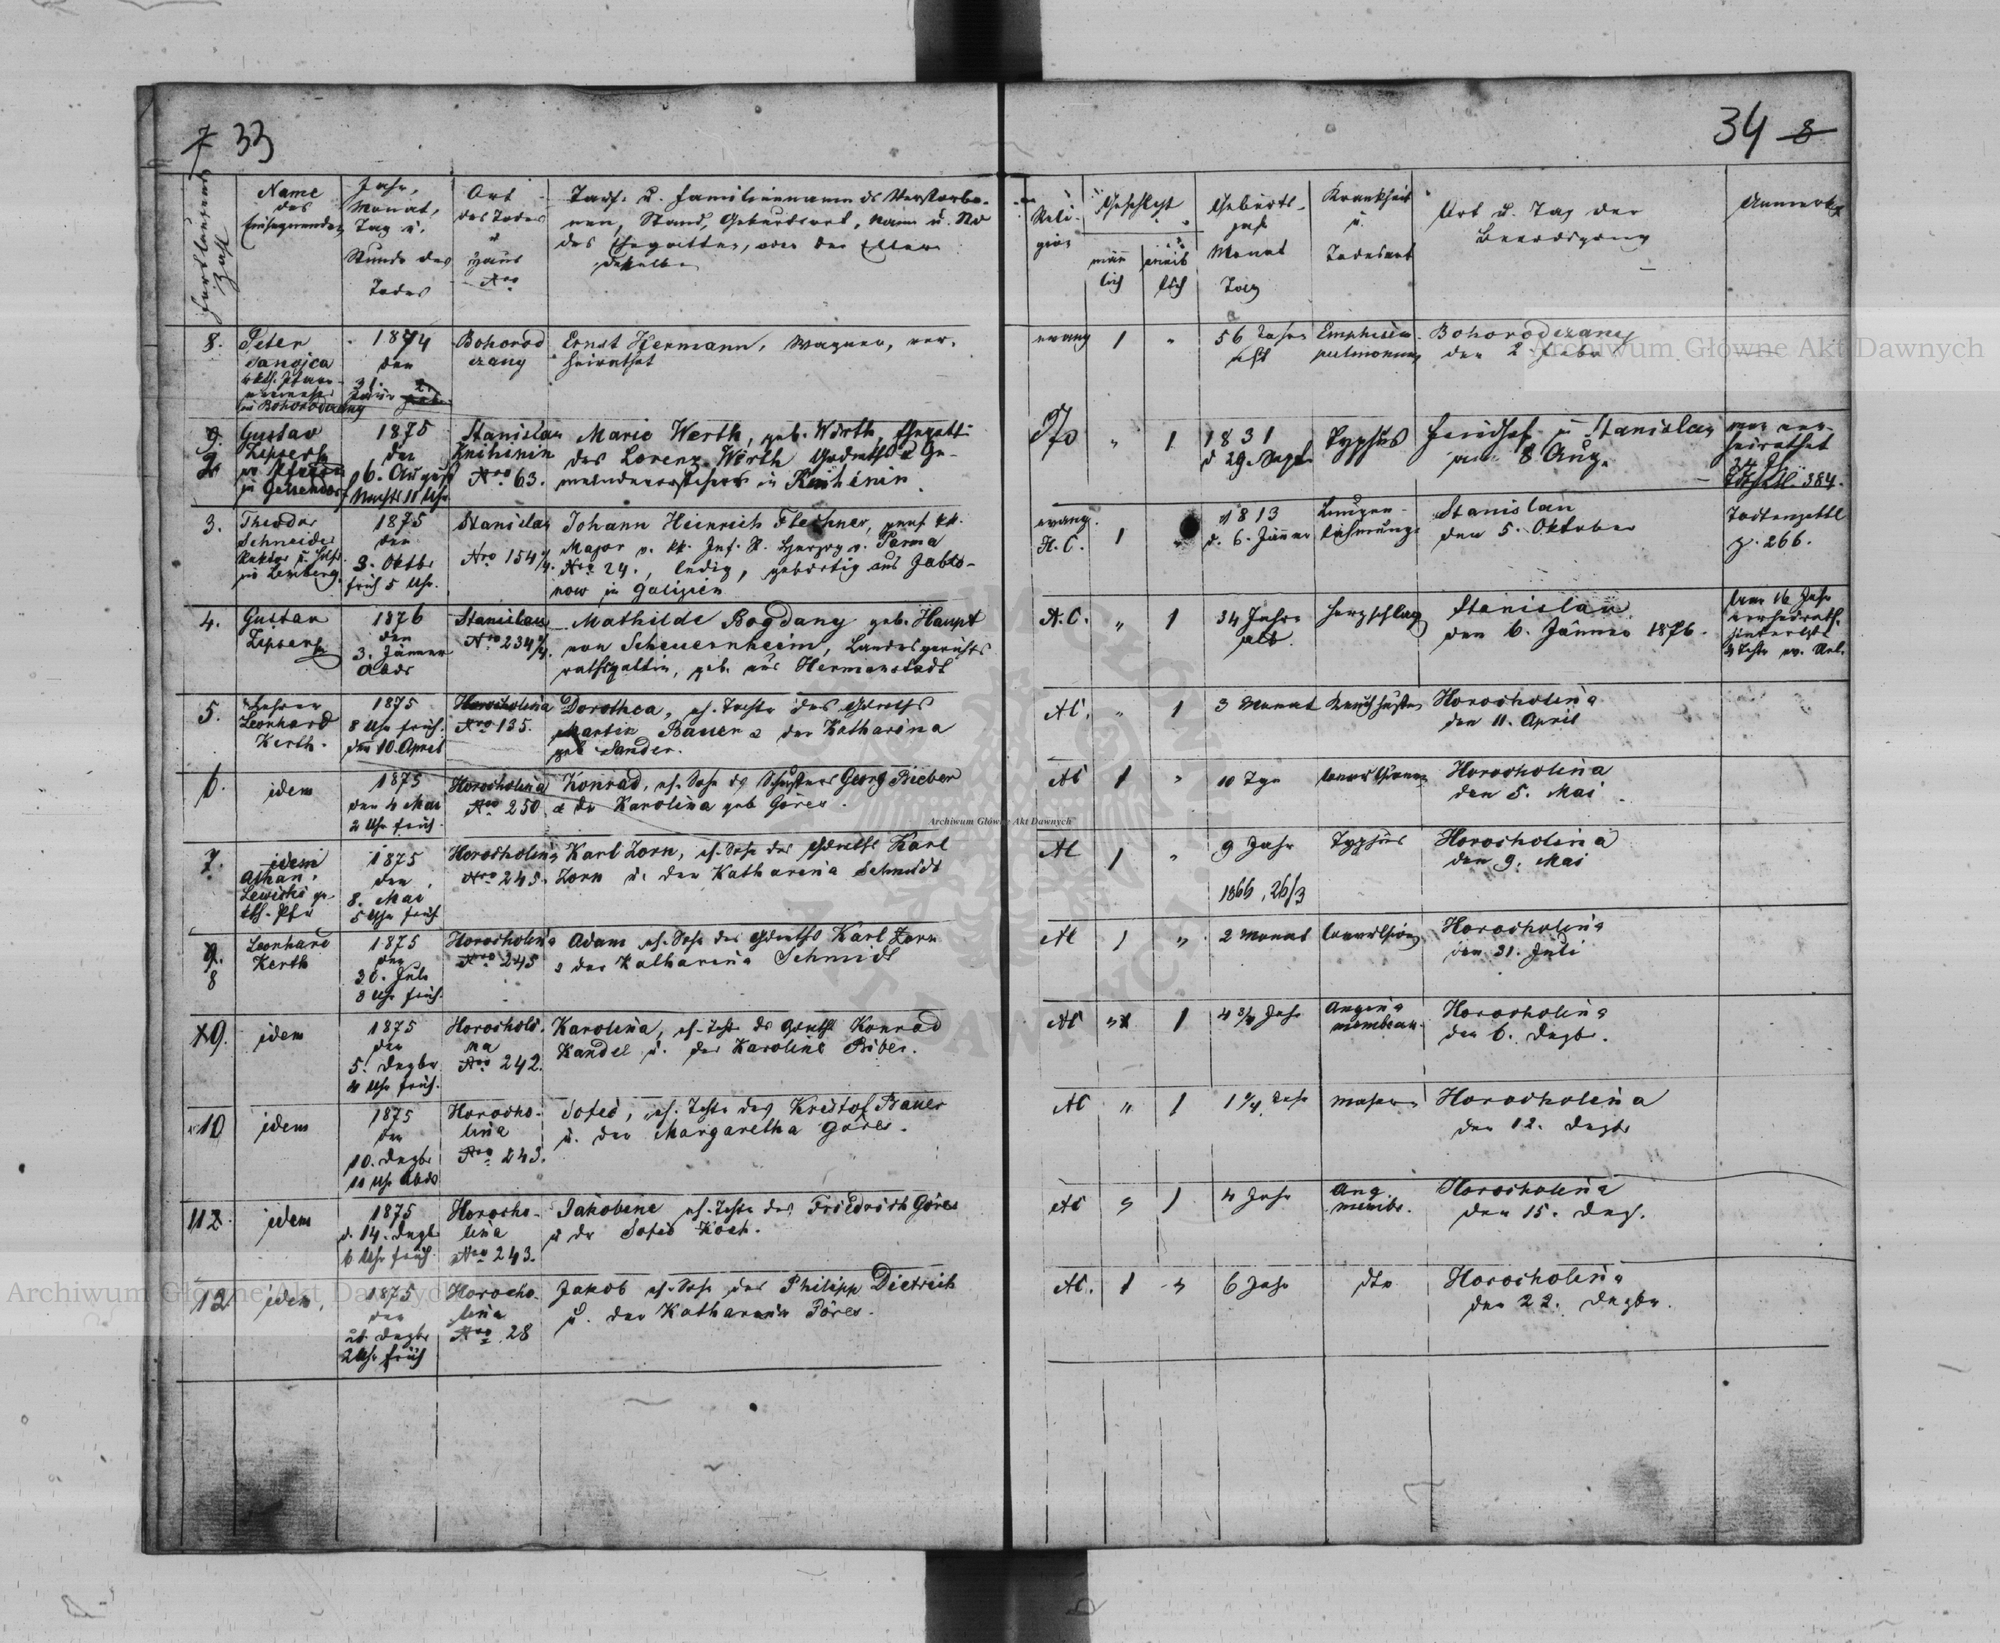 7 33
34 8
fortlaufende Zahl
Name
des
Einsegnenden
Jahr,
Monat,
Tag u.
Stunde des
Todes
Ort
des Todes
u
Haus
Nro
Tauf- u. Familiennamen des Verstorbe-
nen, Stand, Geburtsort, Name u. St
des Ehegatten, oder der Eltern
desselben
Reli-
gion
Geschlecht
männ
lich
weib
lich
Geburts-
Jahr
Monat
Tag
Krankheit
u.
Todesart
Ort u. Tag der
Beerdigung
Anmerkg
8.
Peter
Sanojca
in Bohorodczany
1874
den
31.
Bohorod
czany
Ernst Hermann, Wagner, ver-
heirathet
evang
1
"
56 Jahre
alt
Emphisem
pulmonum
Bohorodczany
den 2 Febr
9.
2.
Gustav
Zipser
1875
den
6. August
Nachts 11 Uhr
Stanislau
Knihinin
Nro 63.
Marie Werth, geb. Wirth, Ehegatti
des Lorenz Wirth Grdwths & Ge-
meindevorstehers in Knihinin
dto
"
1
1831
d 29. Sept
Typhus
Friedhof in Stanislau
am 8 Aug.
war ver-
heirathet
384.
3.
Theodor
Schneider
in Lemberg.
1875
den
3. Oktbr
früh 5 Uhr.
Stanislau
Nro 154 1/4.
Johann Heinrich Flechner, pens. kk.
Major v. kk. Inf. R. Herzog v. Parma
Nro 24., ledig, gebürtig aus Jablo-
now in Galizien
evang.
H. C.
1
1813
d. 6. Jänner
Lungen-
lähmung
Stanislau
den 5. Oktober
Todtenzettl
z. 266.
4.
Gustav
Zipser
1876
den
3. Jänner
Abds
Stanislau
Nro 234 1/4.
Mathilde Bogdany geb. Haupt
von Scheuernheim, Landesgerichts
rathsgattin, geb. aus Hermanstadt
A. C.
"
1
34 Jahre
alt.
Herzschlag
Stanislau
den 6. Jänner 1876.
5.
Lehrer
Leonhard
Kerth.
1875
8 Uhr früh.
den 10. April
Horocholina
Nro 135.
Dorothea, eh. Tochter des Grdwths
Martin Bauer & der Katharina
geb Sander.
AC.
"
1
3 Monat
Keuchhusten
Horocholina
den 11. April
6.
idem
1875
den 4 Mai
2 Uhr früh.
Horocholina
Nro 250
Konrad, eh. Sohn des Schusters Georg Bieber
& der Karolina geb Göres.
AC
1
"
10 Tge
Horocholina
den 5. Mai
7.
idem
1875
den
8. Mai
5 Uhr früh
Horocholina
Nro 245.
Karl Zorn, eh. Sohn des Grdwths Karl
Zorn u. der Katharina Schmidt
AC
1
"
9 Jahr
1866, 26/3
Typhus
Horocholina
den 9. Mai
9.
8
Leonhard
Kerth
1875
den
30. Juli
3 Uhr früh.
Horocholina
Nro 245
Adam eh. Sohn des Grdwths Karl Zorn
& der Katharina Schmidt
AC
1
"
2 Monat
Convulsion
Horocholina
den 31. Juli
9.
idem
1875
den
5. Dezbr
4 Uhr früh.
Horocholi-
na
Nro 242.
Karolina, eh. Tochter des Grdwths Konrad
Kandel u. der Karoline Biber.
AC
1
4 3/4 Jahr
Angina
membran.
Horocholina
den 6. Dezbr.
10
idem
1875
den
10. Dezbr
11 Uhr Abds
Horocho-
lina
Nro 243.
Sofie, eh. Tochter des Kristof Bauer
u. der Margaretha Göres.
AC
"
1
1 1/4 Jahr
Masern
Horocholina
den 12. Dezbr
11
idem
1875
d. 14. Dezbr
6 Uhr früh.
Horocho-
lina
Nro 243.
Jakobine eh. Tochter des Friedrich Göres
u der Sofie Koch.
AC
"
1
4 Jahr
Ang
membr.
Horocholina
den 15. Dez.
12
idem,
1875
den
21. Dezbr
2 Uhr früh
Horocho-
lina
Nro 28
Jakob eh. Sohn des Philipp Dietrich
u. der Katharina Göres.
AC.
1
"
6 Jahr
dto
Horocholina
den 22. Dezbr.
Archiwum Główne Akt Dawnych
Archiwum Główne Akt Dawnych
Archiwum Główne Akt Dawnych